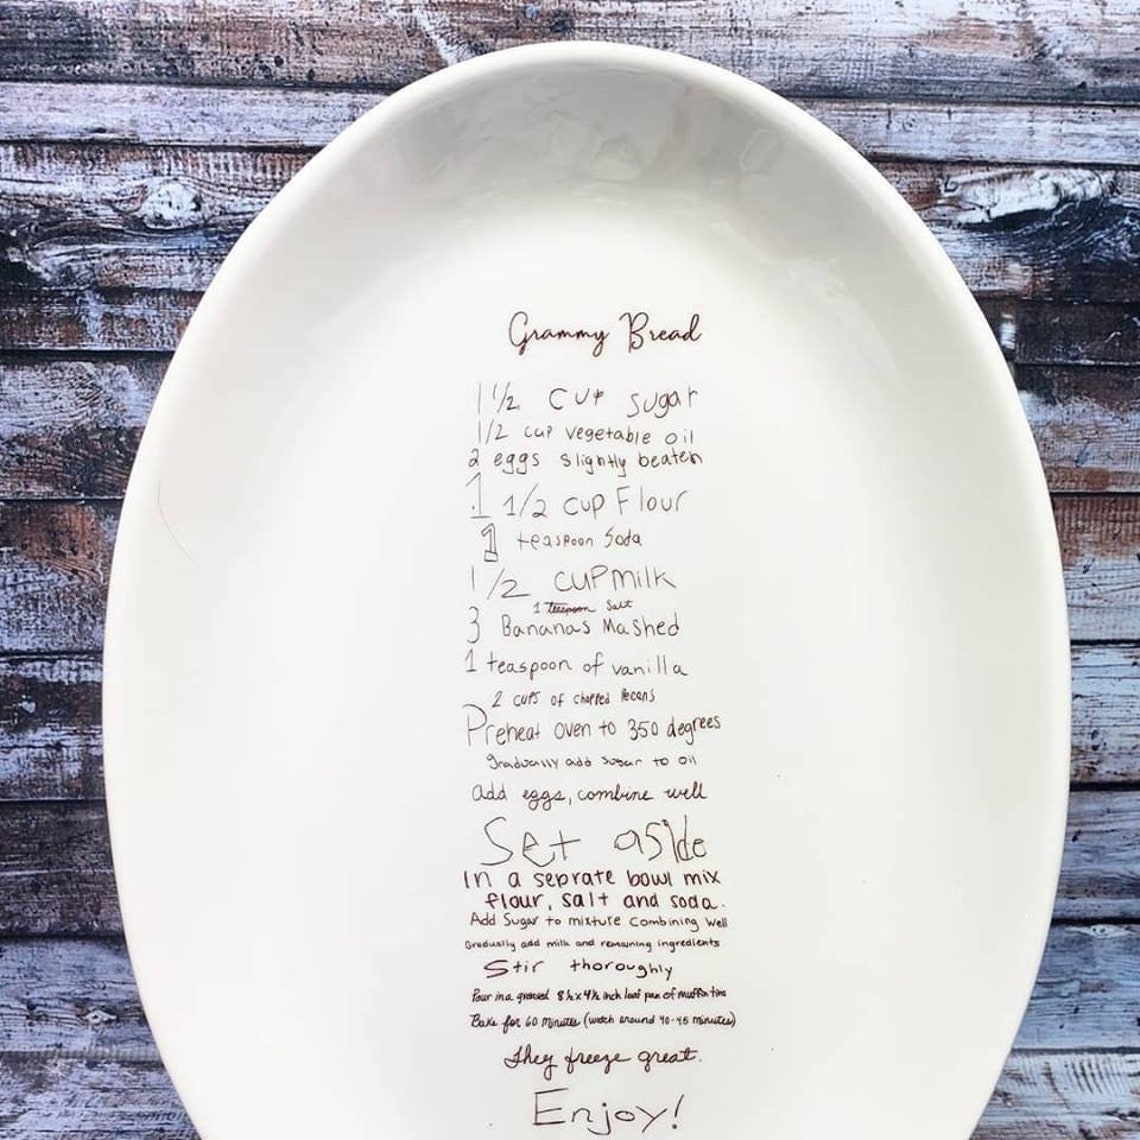 Grammy Bread
1 1/2 cup sugar
1/2 cup vegetable oil
2 eggs slightly beaten
1 1/2 cup Flour
1 teaspoon Soda
1/2 cup milk
1 teaspoon Salt
3 Bananas Mashed
1 teaspoon of vanilla
2 cups of chopped Pecans
Preheat oven to 350 degrees
gradually add sugar to oil
add eggs, combine well
Set aside
In a seprate bowl mix
flour, salt and soda.
Add Sugar to mixture Combining Well
Gradually add milk and remaining ingredients
Stir thoroughly
Pour in a greased 8½x4½ inch loaf pan of muffin tins
Bake for 60 minutes (watch around 40-45 minutes)
They freeze great.
Enjoy!